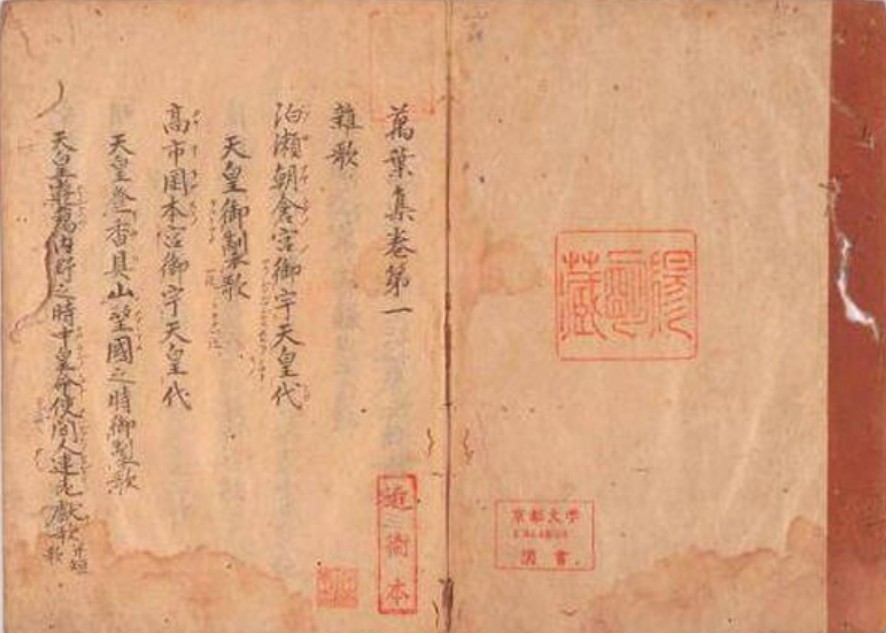 陽明藏
京都大学
圖書
萬葉集卷第一
雜歌
泊瀬朝倉宮御宇天皇代
天皇御製歌
高市岡本宮御宇天皇代
天皇登香具山望國之時御製歌
天皇遊獦内野之時中皇命使間人連老獻歌 并短歌
近衛本